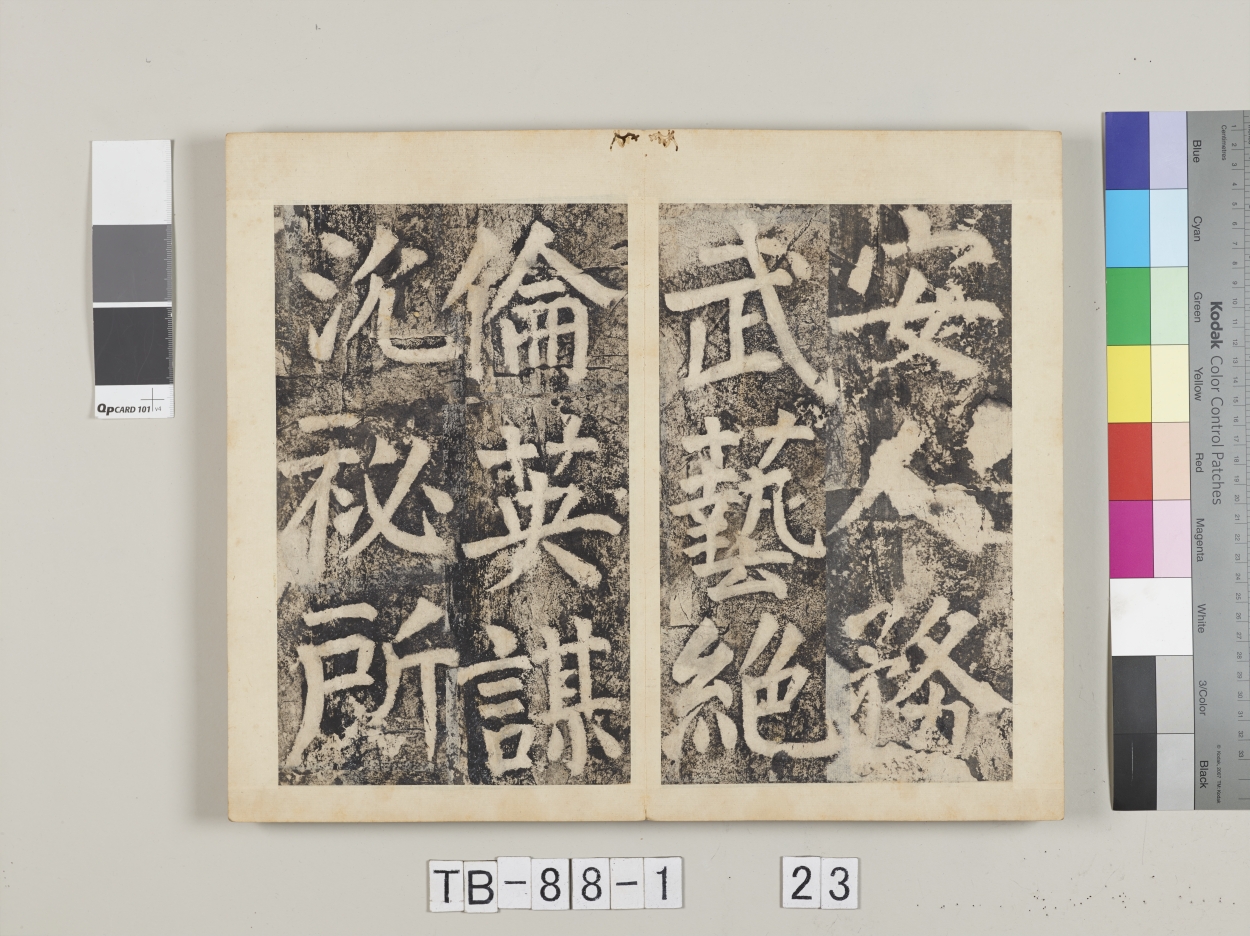 安人務
武藝絕
倫英謀
沈祕所
TB-88-1 23
QpCARD 101 v4
Kodak Color Control Patches
Blue
Cyan
Green
Yellow
Red
Magenta
White
3/Color
Black
Centimetres